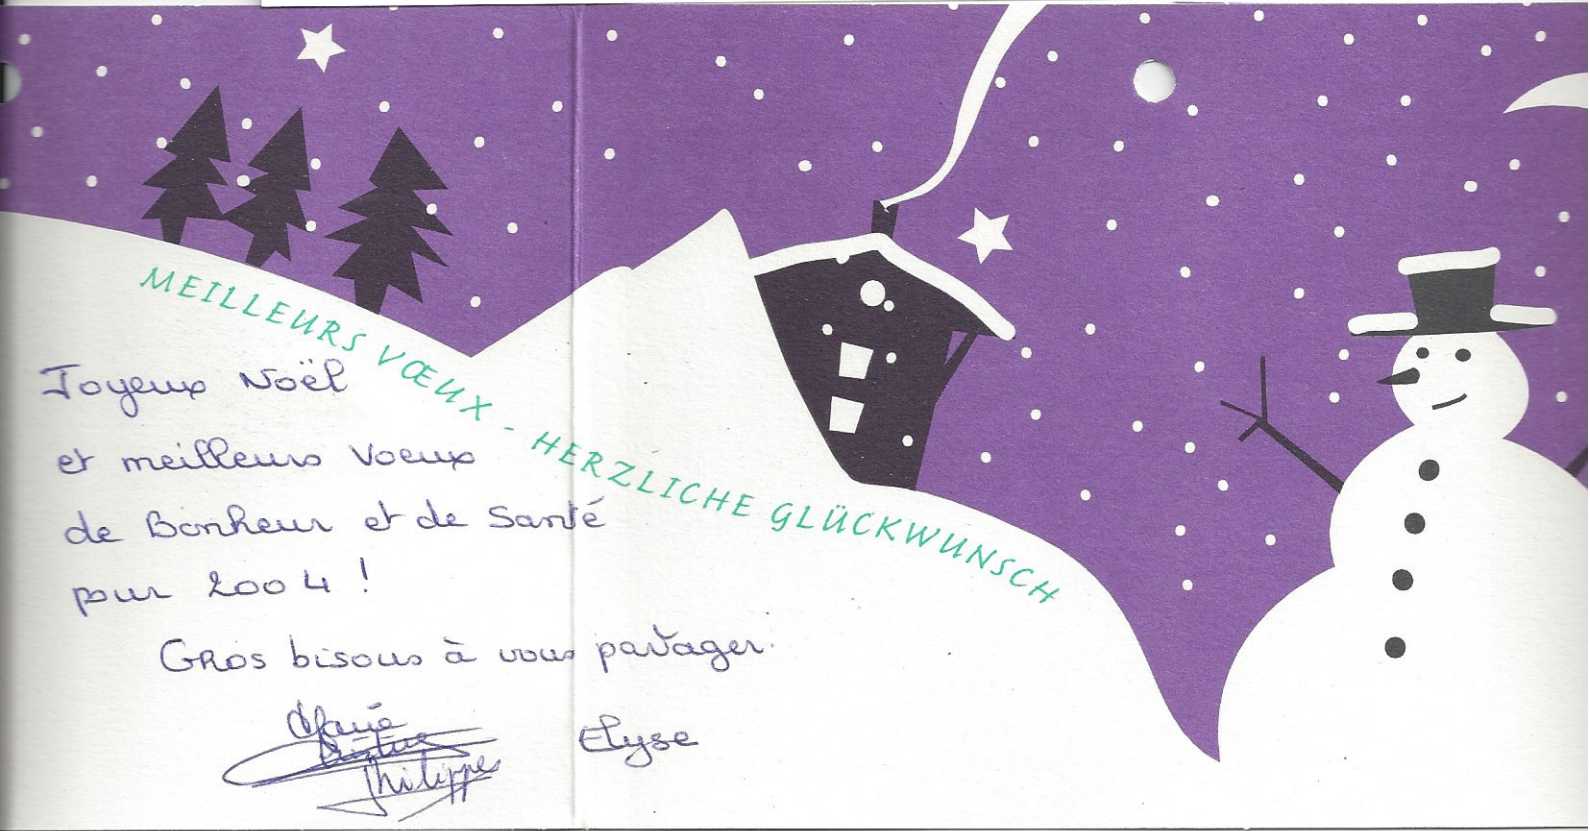 MEILLEURS VŒUX - HERZLICHE GLÜCKWUNSCH
Joyeux Noël
et meilleurs voeux
de Bonheur et de Santé
pour 2004 !
Gros bisous à vous partager.
Marie
Christine
Philippe
Elyse